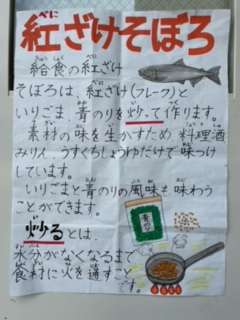 紅ざけそぼろ
べに
給食の紅ざけ
そぼろは、紅ざけ(フレーク)と
いりごま、青のりを炒って作ります。
素材の味を生かすため料理酒
みりん、うすくちしょうゆだけで味つけ
しています。
いりごまと青のりの風味も味わう
ことができます。
炒るとは、
水分がなくなるまで
食材に火を通すこと
です。
青のり